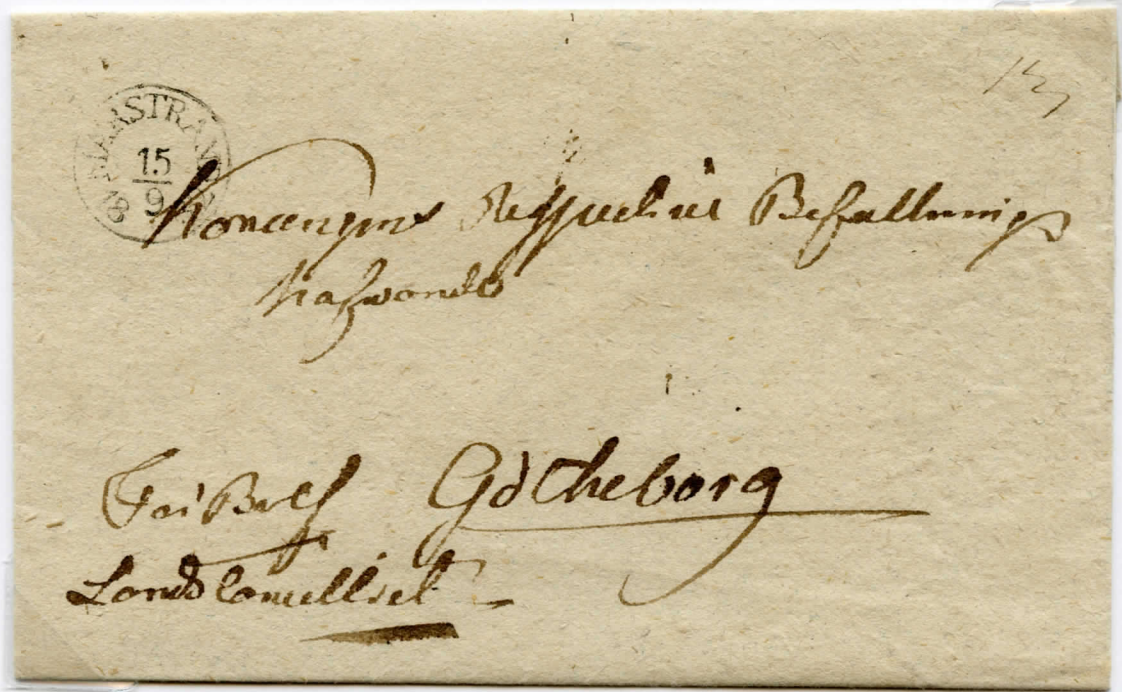 MARSTRAND
15
9
Konungens Respective Befallnings
hafwande
Fri Bref Götheborg
Landscancelliet